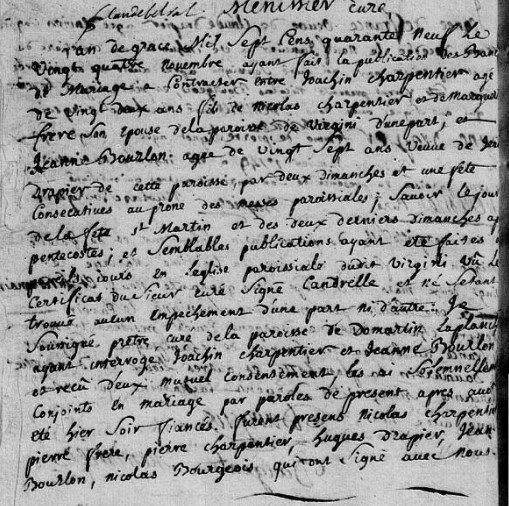 Menissier curé
L'an de grace Mil Sept Cens quarante Neuf Le
Vingt quatre novembre ayant fait la publication des Banc
de Mariage a Contracter entre Joachin Charpentier agé
de vingt deux ans fils de Nicolas charpentier et de Marguer
frere Son epouse de la paroisse de Virgini d'une part; et
Jeanne Bourlon agée de Vingt Sept ans Veuve de Jean
Drapier de cette paroisse par deux dimanches et une fête
Consecutives au prone des messes paroissiales; Savoir le jour
de la fête St Martin et des deux derniers Dimanches ap
pentecostes, et Semblables publications ayant été faites
jours en l'eglise paroissiale dudit Virgini Vû Le
Certificat du Sieur curé Signé Candrelle et ne Setant
trouvé aucun Empêchement d'une part ni d'autre: Je
Soussigné prêtre curé de la paroisse de Domartin Laplanch
ayant interrogé Joachin charpentier et Jeanne Bourlon
et recû Deux mutuel Consentement, les ai Solemnellem
Conjoints en mariage par paroles de present apres avoir
été hier Soir fiancés. furent presens Nicolas charpentier
pierre frere, pierre charpentier, hugues Drapier, Jean
Bourlon, nicolas Bourgeois, qui ont Signé avec Nous.